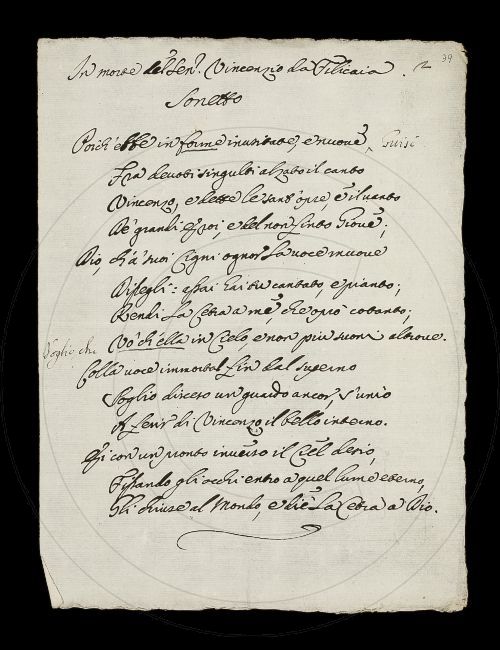 39
In morte del Sen.r Vincenzio da Filicaia. 2
Sonetto
Poich' ebbe in forme inusitate, e nuove, Guise
Fra devoti singulti alzato il canto
Vincenzo, e dette le sant' opre, e il vanto
De' grandi Eroi, e del non finto Giove;
Dio, ch' a' suoi Cigni ognor la voce muove
Dissegli: assai hai tu cantato, e pianto;
Rendi la Cetra a me, che
Voglio, che Vo' ch' ella in Cielo, e non più suoni altrove.
Colla voce immortal fin dal superno
Soglio disceso un guardo ancor, s' unìo
A ferir di Vincenzo il bello interno.
Ei con un pronto inverso il Ciel desio,
Fissando gli occhi entro a quel lume eterno,
Gli chiuse al Mondo, e diè la Cetra a Dio.